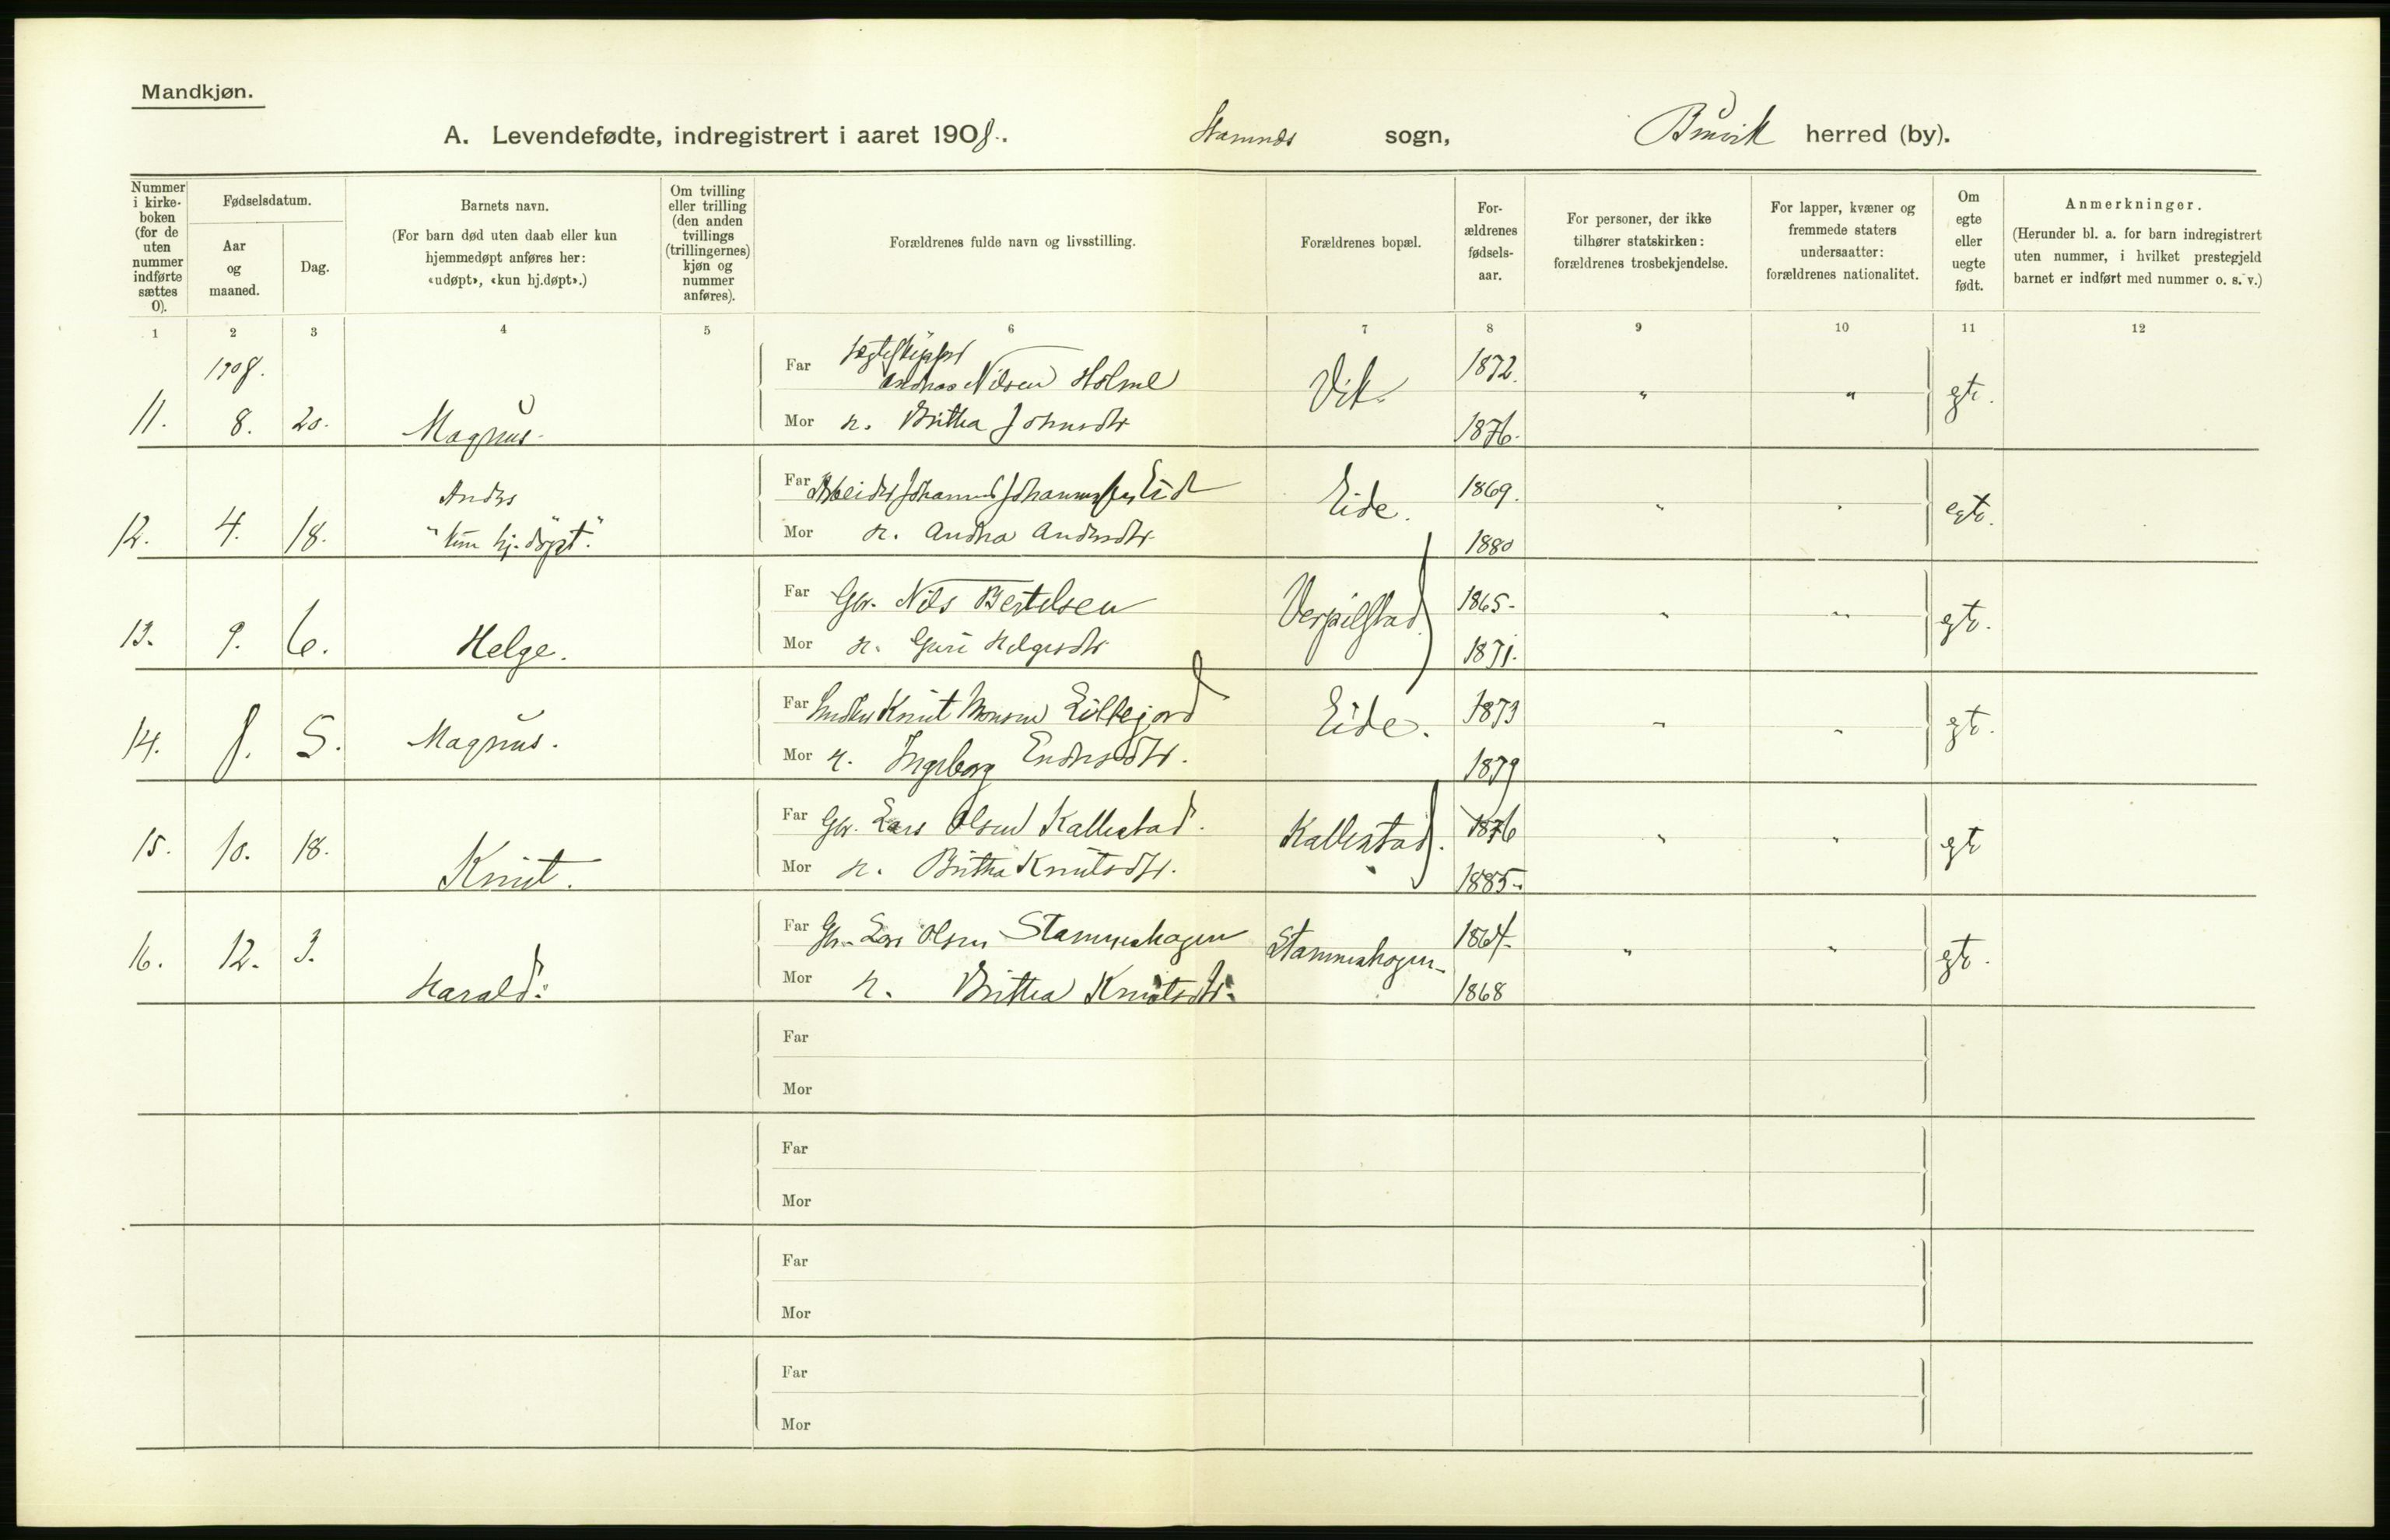 Mandkjøn.
A. Levendefødte, indregistrert i aaret 1908. Stamnes sogn, Bruvik herred (by).
Nummer i kirke-boken (for de uten nummer indførte sættes 0).
Fødselsdatum.
Aar og maaned.
Dag.
Barnets navn.
(For barn død uten daab eller kun
hjemmedøpt anføres her:
«udøpt», «kun hj.døpt».)
Om tvilling
eller trilling
(den anden
tvillings
(trillingernes)
kjøn og
nummer
anføres).
Forældrenes fulde navn og livsstilling.
Forældrenes bopæl.
For-
ældrenes
fødsels-
aar.
For personer, der ikke
tilhører statskirken:
forældrenes trosbekjendelse.
For lapper, kvæner og
fremmede staters
undersaatter:
forældrenes nationalitet.
Om
egte
eller
uegte
født.
Anmerkninger.
(Herunder bl. a. for barn indregistrert
uten nummer, i hvilket prestegjeld
barnet er indført med nummer o. s. v.)
1 2 3 4 5 6 7 8 9 10 11 12
1908.
11. 8. 20. Magnus. Far Jægteskipper Andreas Nilsen Holme Vik. 1872. " " gte.
Mor H. Britha Johnsdtr 1876.
12. 4. 18. Anders "kun hj. døpt". Far Arbeider Johannes Johannessen Eide Eide. 1869. " " egte.
Mor H. Andrea Andersdtr 1880
13. 9. 6. Helge. Far Gbr. Nils Bertelsen Verpilstad 1865. " " gte.
Mor H. Guri Helgesdtr 1871.
14. 8. 5. Magnus. Far Knut Monsen Lillejord Eide. 1873 " " gte.
Mor H. Ingeborg Endresdtr. 1879
15. 10. 18. Knut. Far Gbr. Lars Olsen Kallestad. Kallestad. 1876 " " gte
Mor H. Britha Knutsdtr. 1885.
16. 12. 3. Harald. Far Gbr. Lars Olsen Stamneshagen Stamneshagen 1864. " " gte.
Mor H. Britha Knutsdtr. 1868
Far
Mor
Far
Mor
Far
Mor
Far
Mor